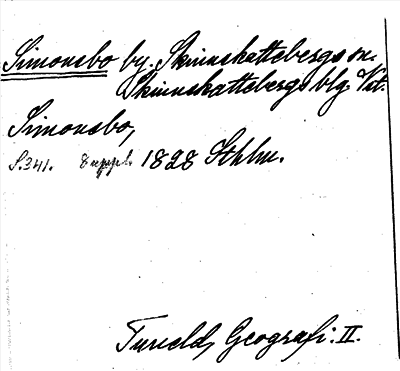 Simonsbo by. Skinnskattebergs sn.
Skinnskattebergs blg. Vstm.
Simonsbo,
S. 341. Suppl. 1828 Sthlm.
Tuneld, Geografi. II.